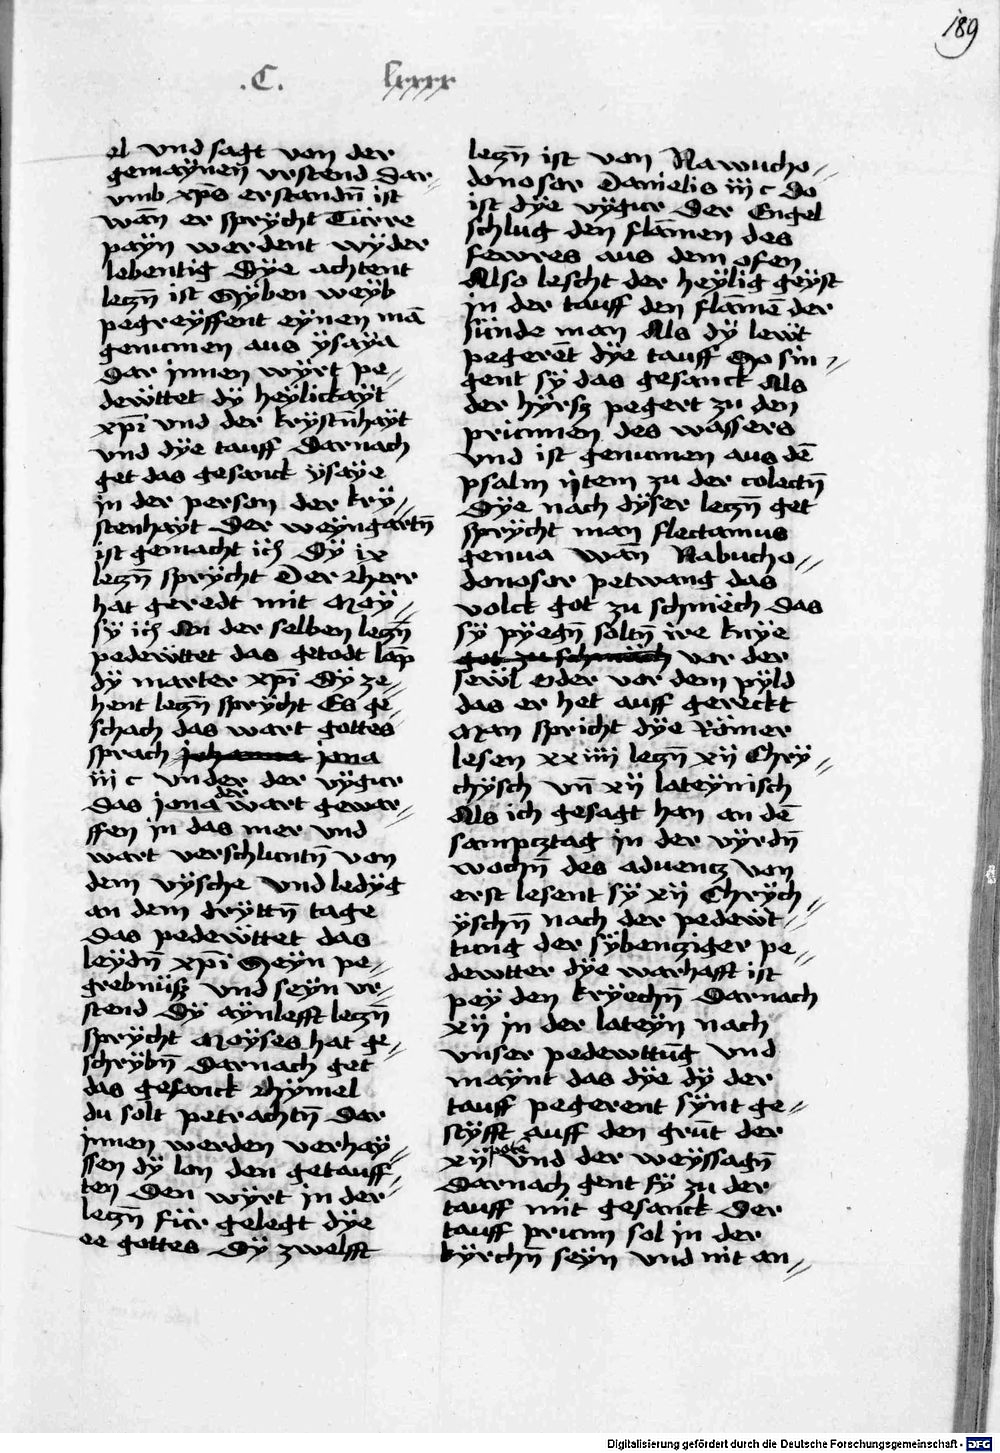 189
.C. lxxxx
el vnd sagt von der
gemaÿnen̄ vrstend Dar⸗
vmb xp̄s erstandn̄ ist
wan̄ er sprÿcht Türre
paÿn werdent wÿder
lebentig Dÿe achtent
leczn̄ ist Sÿben weÿb
pegreÿffent eÿnen mā
genumen aus ÿsaÿa
Dar jnnen wÿrt pe⸗
dewttet dÿ heÿlickaÿt
xp̄i vnd der krÿstn̄haÿt
vnd dÿe tauff Darnach
get das gesanck ÿsaÿe
in der person der krÿ⸗
stenhaÿt Der weÿngartn̄
ist gemacht ich Dÿ ix
leczn̄ sprÿcht Der Herr
hat geredt mit Moÿ⸗
sÿ ich An der selben leczn̄
pedewttet das getodt lāp
dÿ marter xp̄i Dÿ ze⸗
hent leczn̄ sprÿcht Es ge⸗
schach das wart gottes
sprach johanna jona
iii c vnder der vÿgur
das jona der wart gewor⸗
ffen in das mer vnd
wart verschluntn̄ von
dem vÿsche vnd ledÿg
an dem drÿttn̄ tage
Das pedewttet das
leÿdn̄ xp̄i Seÿn pe⸗
grebnüsz vnd seÿn vr⸗
stend Dÿ aÿnlefft leczn̄
sprÿcht Moÿses hat ge⸗
schrÿbn̄ Darnach get
das gesanck Hÿmel
du solt petrachtn̄ Dar
jnnen werden verhaÿ⸗
ssen dÿ lon den getauff⸗
ten Den wÿrt in der
leczn̄ für gelegt dÿe
ee gottes Dÿ zwelfft
leczn̄ ist von Nawucho⸗
donosor Danielis iii c Do
ist dÿe vÿgur Der Engel
schlug den flāmen des
fewres aus dem ofen
Also lescht der heÿlig geÿst
in der tauff den flāmē der
sünde man Als dÿ lewt
pegerēt dÿe tauff So sin⸗
gent sÿ das gesanck Als
der hÿrsz pegert zu den
prunnen des wassers
vnd ist genumen aus dē
psalm ÿtem zu der colectn̄
Dÿe nach dÿser leczn̄ get
sprÿcht man flectamus
genua wan̄ Nabucho⸗
donosor petwang das
volck got zu schmech das
sÿ pÿegn̄ soltn̄ ire knÿe
got zu schmäch vor der
sewl oder vor dem pÿld
das er het auff gereckt
Man spricht dÿe Römer
lesen xxiiii leczn̄ xii Chrÿ⸗
chÿsch vn̄ xii lateÿnisch
Als ich gesagt han an dē
sampcztag in der vÿrdn̄
wochn̄ des aduencz von
erst lesent sÿ xii Chrÿch⸗
ÿschn̄ nach der pedewt⸗
tung der sÿbencziger pe⸗
dewtter dÿe warhafft ist
peÿ den krÿechn̄ Darnach
xii in der lateÿn nach
vnser pedewttūg vnd
maÿnt das dÿe dÿ der
tauff pegerent sÿnt ge⸗
stÿfft auff den grūt der
xii pote vnd der weÿssagn̄
Darnach gent sÿ zu der
tauff mit gesanck Der
tauff prunn sol in der
kÿrchn̄ seÿn vnd nit an⸗
Digitalisierung gefördert durch die Deutsche Forschungsgemeinschaft - DFG